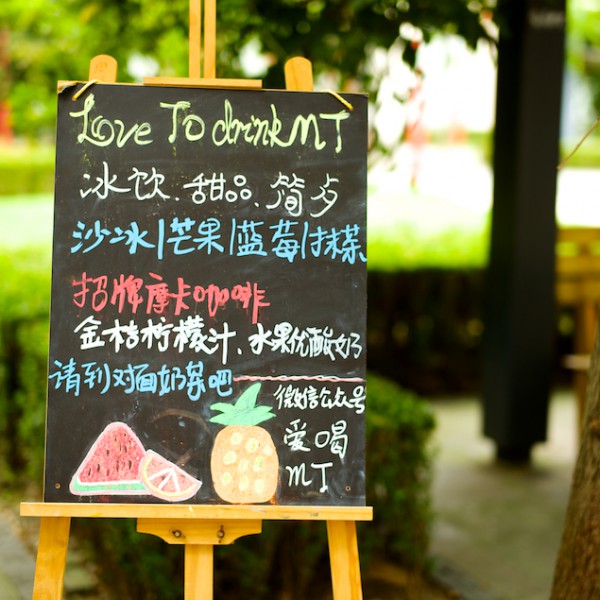 Love To drink MT
冰饮、甜品、简歺
沙冰|芒果|蓝莓|抹茶
招牌摩卡咖啡
金桔柠檬汁、水果优酸奶
请到对面奶茶吧
微信公众号
爱喝
MT